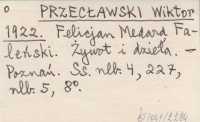 o PRZECŁAWSKI Wiktor
1922. Felicjan Medard Fa-
leński. Żywot i dzieła. —
Poznań. Ss. nlb. 4, 227,
nlb. 5, 8°.